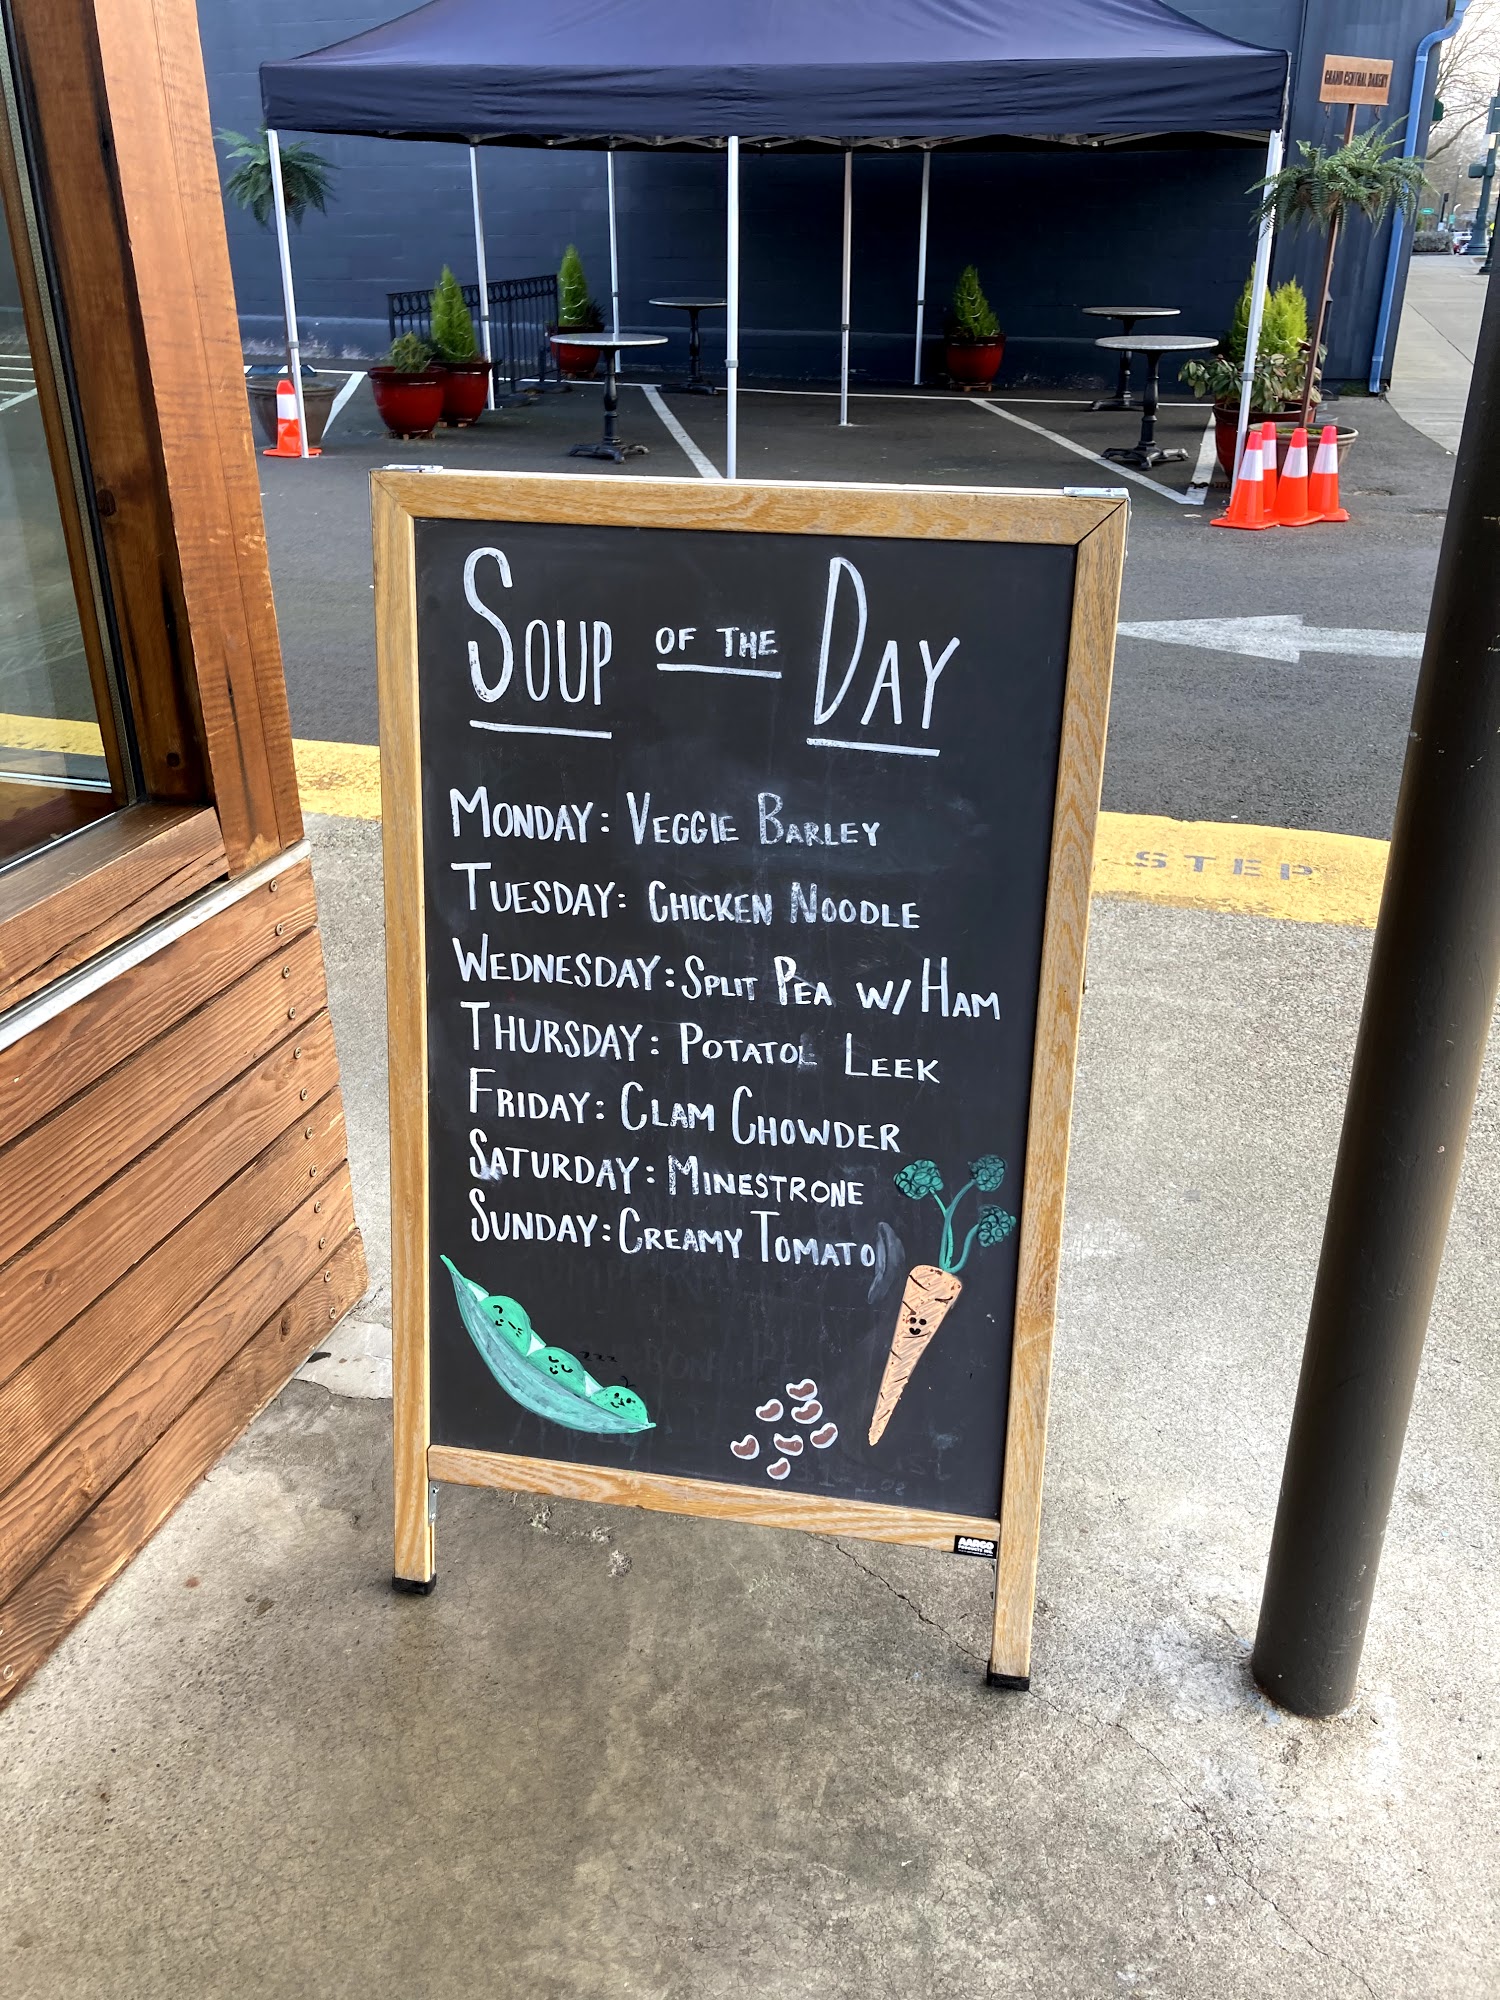 GRAND CENTRAL BAKERY
SOUP OF THE DAY
MONDAY: VEGGIE BARLEY
TUESDAY: CHICKEN NOODLE
WEDNESDAY: SPLIT PEA W/ HAM
THURSDAY: POTATO LEEK
FRIDAY: CLAM CHOWDER
SATURDAY: MINESTRONE
SUNDAY: CREAMY TOMATO
zzz
STEP
AARCO
PRODUCTS INC.